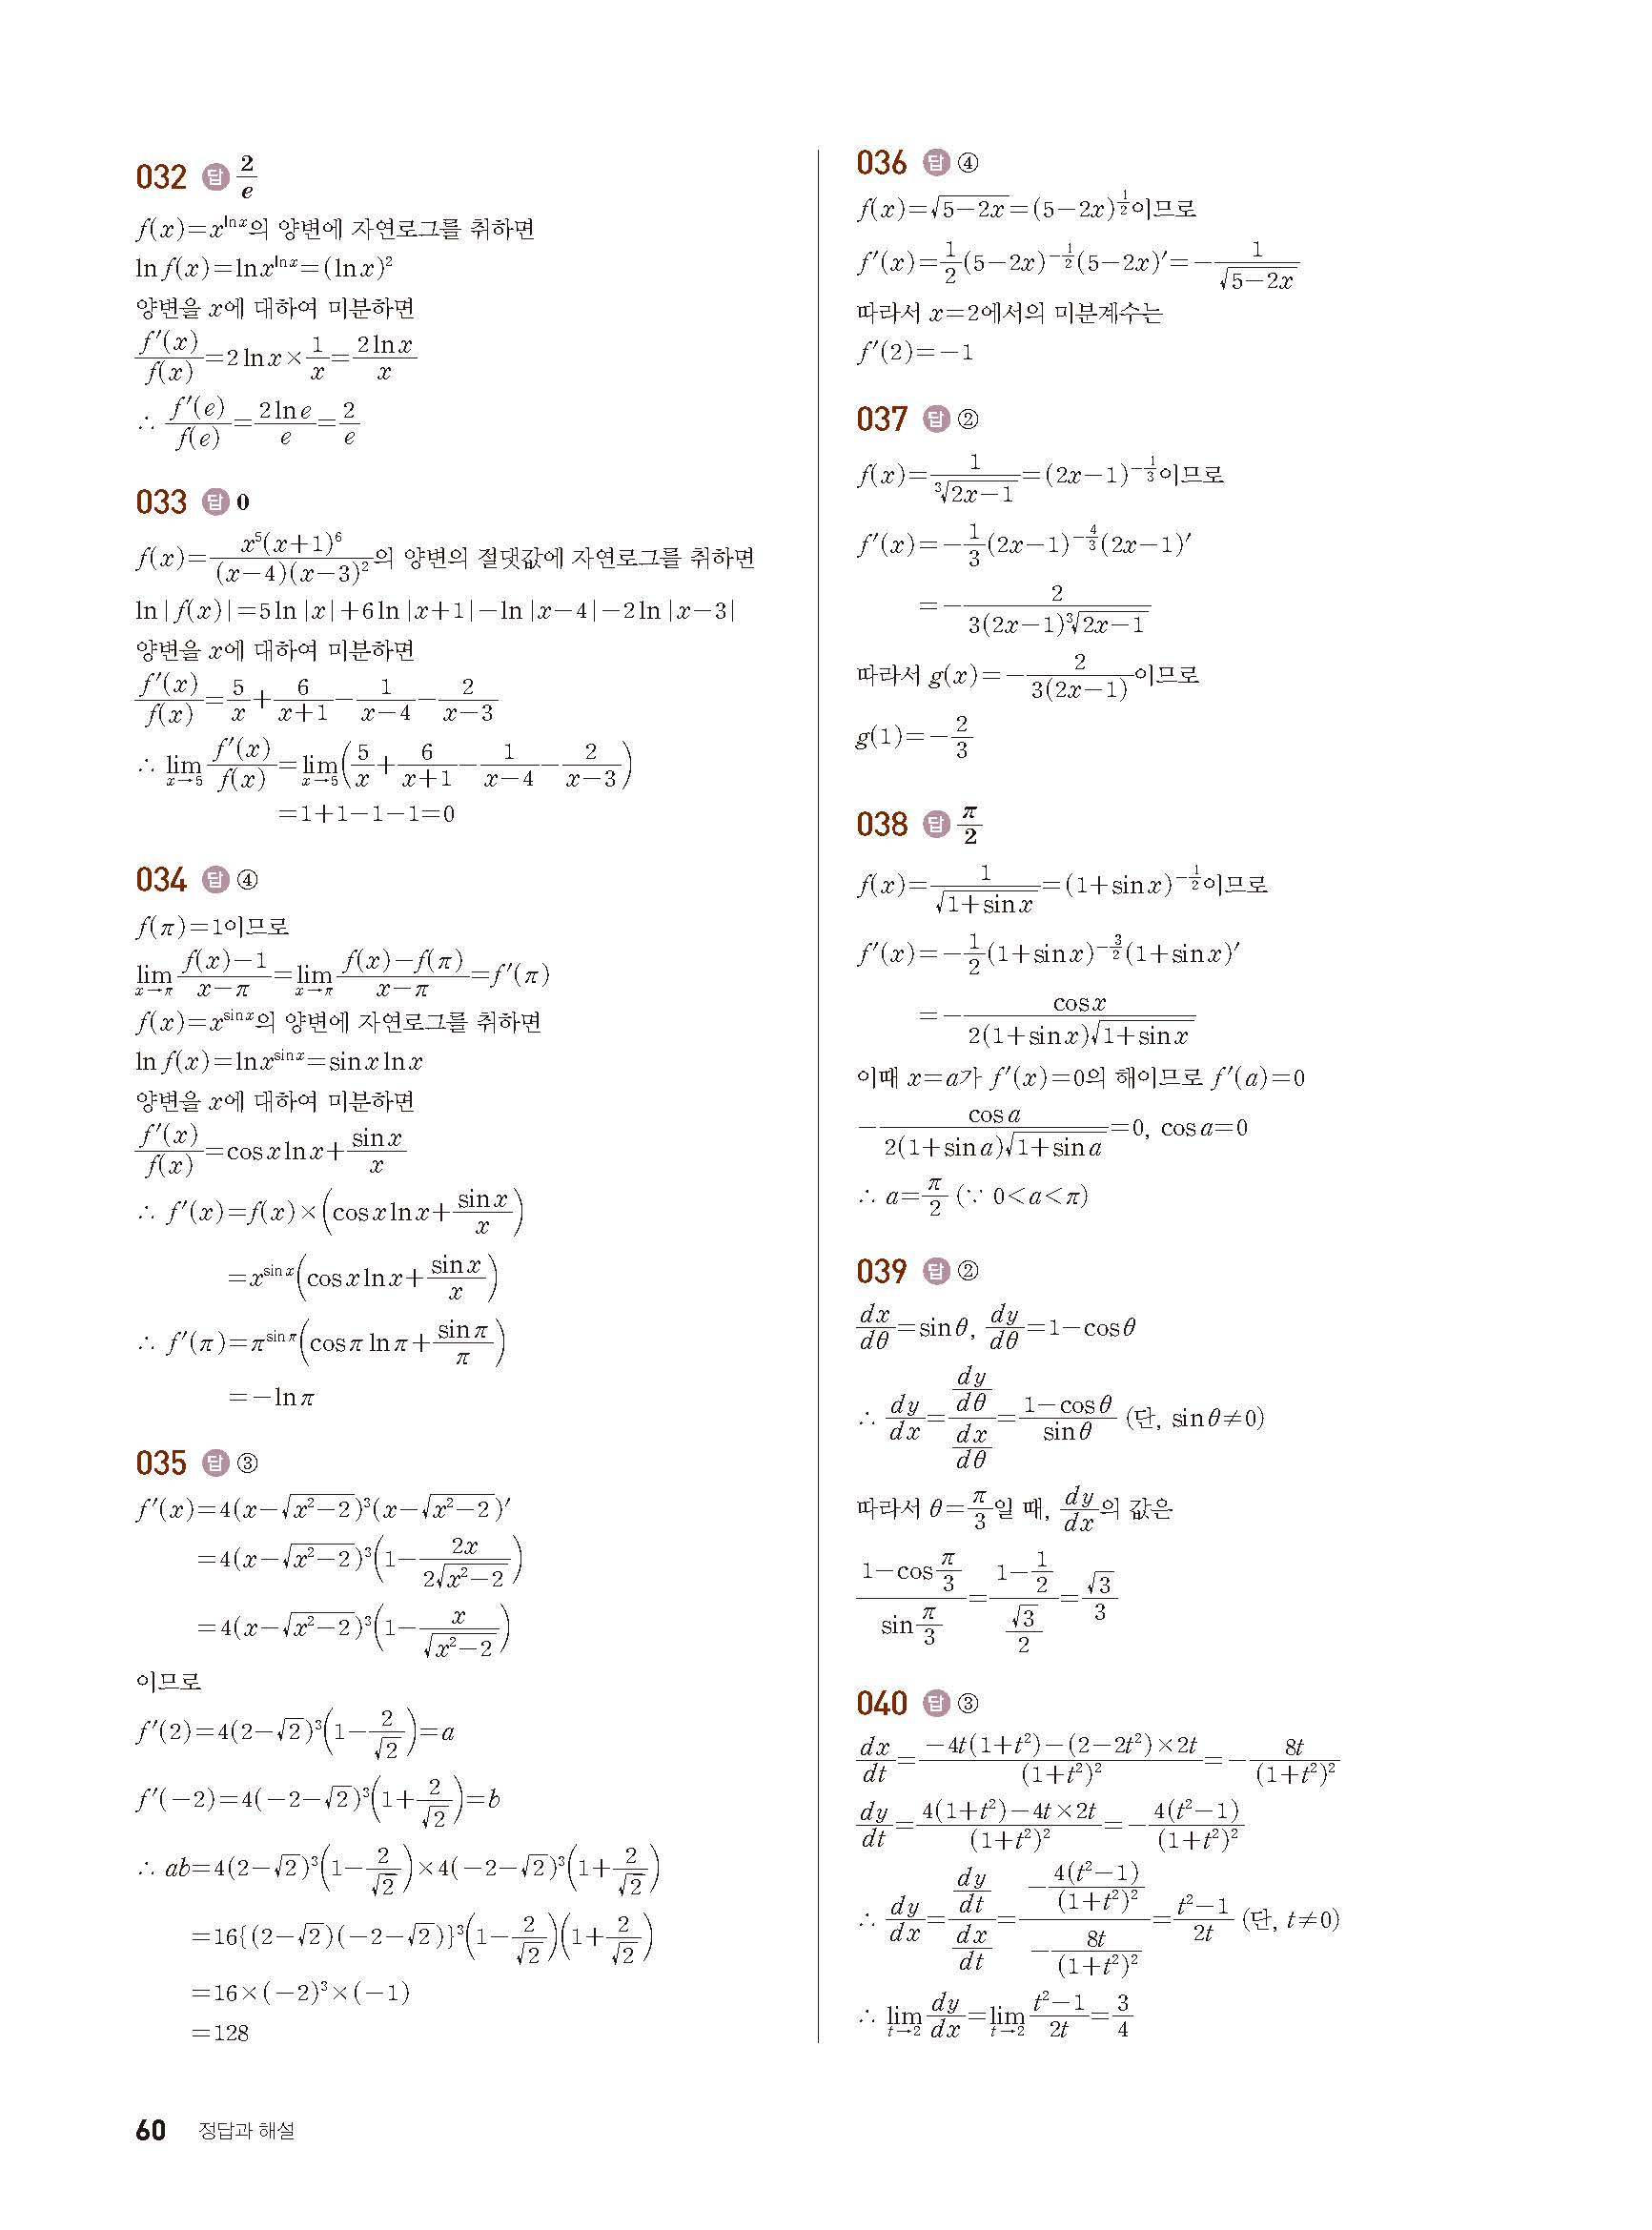 032 답 2/e
f(x)=x^{ln x}의 양변에 자연로그를 취하면
ln f(x)=ln x^{ln x}=(ln x)²
양변을 x에 대하여 미분하면
f′(x)/f(x)=2 ln x×1/x=2 ln x/x
∴ f′(e)/f(e)=2 ln e/e=2/e
033 답 0
f(x)=x⁵(x+1)⁶/(x-4)(x-3)²의 양변의 절댓값에 자연로그를 취하면
ln|f(x)|=5 ln|x|+6 ln|x+1|-ln|x-4|-2 ln|x-3|
양변을 x에 대하여 미분하면
f′(x)/f(x)=5/x+6/(x+1)-1/(x-4)-2/(x-3)
∴ lim_{x→5} f′(x)/f(x)=lim_{x→5}(5/x+6/(x+1)-1/(x-4)-2/(x-3))
=1+1-1-1=0
034 답 ④
f(π)=1이므로
lim_{x→π} (f(x)-1)/(x-π)=lim_{x→π} (f(x)-f(π))/(x-π)=f′(π)
f(x)=x^{sin x}의 양변에 자연로그를 취하면
ln f(x)=ln x^{sin x}=sin x ln x
양변을 x에 대하여 미분하면
f′(x)/f(x)=cos x ln x+sin x/x
∴ f′(x)=f(x)×(cos x ln x+sin x/x)
=x^{sin x}(cos x ln x+sin x/x)
∴ f′(π)=π^{sin π}(cos π ln π+sin π/π)
=-ln π
035 답 ③
f′(x)=4(x-√(x²-2))³(x-√(x²-2))′
=4(x-√(x²-2))³(1-2x/(2√(x²-2)))
=4(x-√(x²-2))³(1-x/√(x²-2))
이므로
f′(2)=4(2-√2)³(1-2/√2)=a
f′(-2)=4(-2-√2)³(1+2/√2)=b
∴ ab=4(2-√2)³(1-2/√2)×4(-2-√2)³(1+2/√2)
=16{(2-√2)(-2-√2)}³(1-2/√2)(1+2/√2)
=16×(-2)³×(-1)
=128
036 답 ④
f(x)=√(5-2x)=(5-2x)^{1/2}이므로
f′(x)=1/2(5-2x)^{-1/2}(5-2x)′=-1/√(5-2x)
따라서 x=2에서의 미분계수는
f′(2)=-1
037 답 ②
f(x)=1/∛(2x-1)=(2x-1)^{-1/3}이므로
f′(x)=-1/3(2x-1)^{-4/3}(2x-1)′
=-2/(3(2x-1)∛(2x-1))
따라서 g(x)=-2/(3(2x-1))이므로
g(1)=-2/3
038 답 π/2
f(x)=1/√(1+sin x)=(1+sin x)^{-1/2}이므로
f′(x)=-1/2(1+sin x)^{-3/2}(1+sin x)′
=-cos x/(2(1+sin x)√(1+sin x))
이때 x=a가 f′(x)=0의 해이므로 f′(a)=0
-cos a/(2(1+sin a)√(1+sin a))=0, cos a=0
∴ a=π/2 (∵ 0<a<π)
039 답 ②
dx/dθ=sin θ, dy/dθ=1-cos θ
∴ dy/dx=(dy/dθ)/(dx/dθ)=(1-cos θ)/sin θ (단, sin θ≠0)
따라서 θ=π/3일 때, dy/dx의 값은
(1-cos π/3)/(sin π/3)=(1-1/2)/(√3/2)=√3/3
040 답 ③
dx/dt=(-4t(1+t²)-(2-2t²)×2t)/(1+t²)²=-8t/(1+t²)²
dy/dt=(4(1+t²)-4t×2t)/(1+t²)²=-4(t²-1)/(1+t²)²
∴ dy/dx=(dy/dt)/(dx/dt)=(-4(t²-1)/(1+t²)²)/(-8t/(1+t²)²)=(t²-1)/2t (단, t≠0)
∴ lim_{t→2} dy/dx=lim_{t→2} (t²-1)/2t=3/4
60 정답과 해설